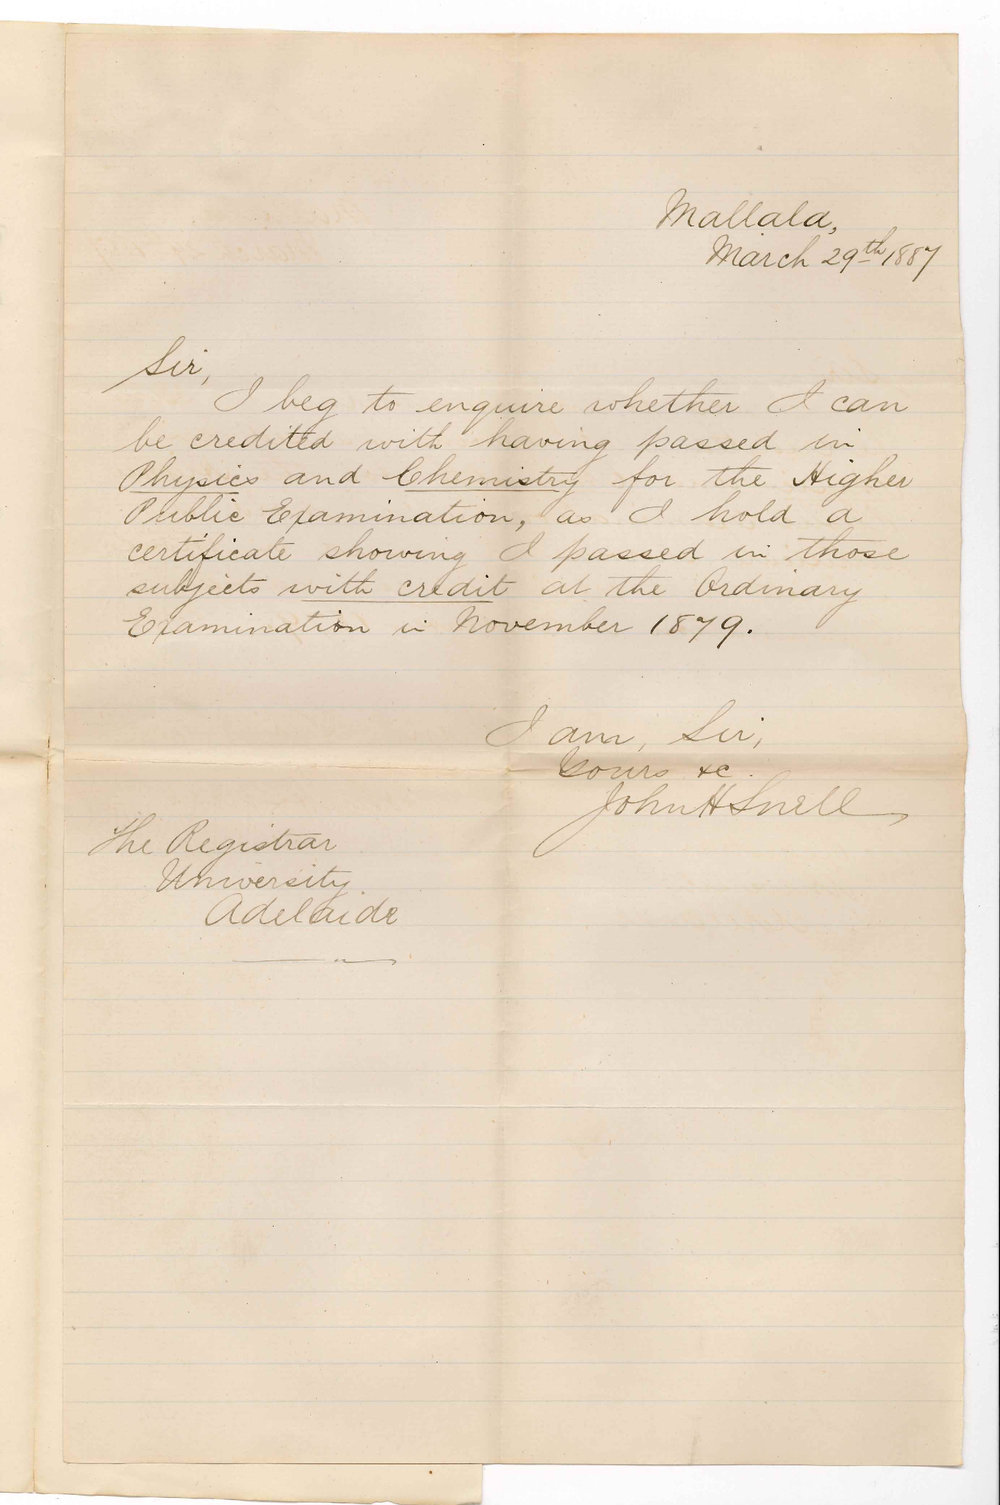 Mallala,
March 29th 1887
Sir,
I beg to enquire whether I can
be credited with having passed in
Physics and Chemistry for the Higher
Public Examination, as I hold a
certificate showing I passed in those
subjects with credit at the Ordinary
Examination in November 1879.
I am, Sir,
Yours &c.
John H Snell
The Registrar
University
Adelaide